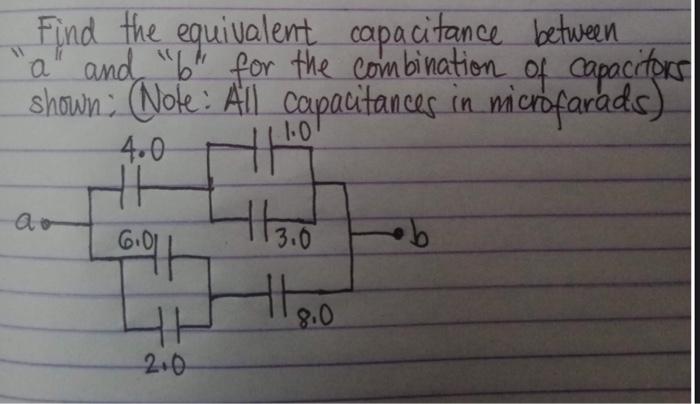 Find the equivalent capacitance between
"a" and "b" for the combination of capacitors
shown: (Note: All capacitances in microfarads)
1.0
4.0
a
6.0
3.0
b
8.0
2.0